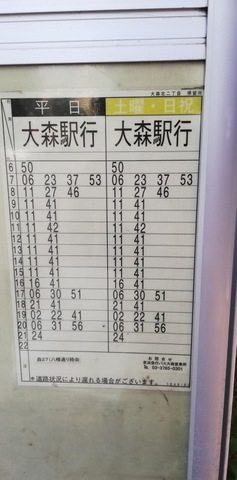 大森北二丁目 停留所
平日 土曜・日祝
大森駅行 大森駅行
6 50 50
7 06 23 37 53 06 23 37 53
8 11 27 46 11 27 46
9 11 41 11 41
10 11 41 11 41
11 11 42 11 42
12 11 41 11 41
13 11 41 11 41
14 11 41 11 41
15 11 41 11 41
16 16 41 16 41
17 06 30 51 06 30 51
18 19 41 19 41
19 02 22 41 02 22 41
20 06 31 56 06 31 56
21 24 24
22
注
森27(八幡通り時央)
お問合せ
京浜急行バス大森営業所
TEL 03-3765-0301
*道路状況により遅れる場合がございます。